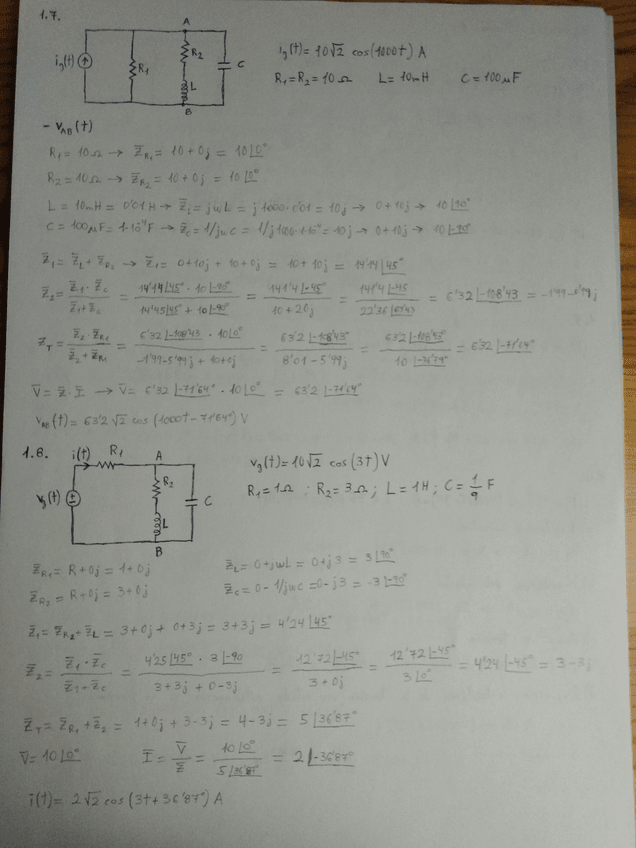 1.7.
A
ig(t) R1 R2 L C
B
ig(t)= 10√2 cos(1000t) A
R1=R2= 10 Ω L= 10mH C= 100 μF
- VAB(t)
R1= 10Ω → Z̄R1= 10+0j = 10∟0°
R2= 10Ω → Z̄R2= 10+0j = 10∟0°
L= 10mH = 0'01H → Z̄L= jωL = j1000·0'01 = 10j → 0+10j → 10∟90°
C= 100μF= 1·10⁻⁴F → Z̄C= 1/jωC = 1/j1000·1·10⁻⁴ = 10j → 0+10j → 10∟-90°
Z̄1= Z̄L+Z̄R2 → Z̄1= 0+10j + 10+0j = 10+10j = 14'14∟45°
Z̄2= Z̄1·Z̄C / Z̄1+Z̄C = 14'14∟45°·10∟-90° / 14'45∟45°+10∟-90° = 141'4∟-45° / 10+20j = 141'4∟-45 / 22'36∟63'43 = 6'32∟-108'43 = -1'99-5'99j
Z̄T= Z̄2·Z̄R1 / Z̄2+Z̄R1 = 6'32∟-108'43·10∟0° / -1'99-5'99j+10+0j = 63'2∟-108'43° / 8'01-5'99j = 63'2∟-108'43° / 10∟-36'79° = 6'32∟-71'64°
V̄= Z̄·Ī → V̄= 6'32∟-71'64°·10∟0° = 63'2∟-71'64°
VAB(t)= 63'2√2 cos(1000t-71'64°) V
1.8.
i(t) R1 A
vg(t) R2 L C
B
vg(t)= 10√2 cos(3t) V
R1= 1Ω ; R2= 3Ω ; L= 1H ; C= 1/9 F
Z̄R1= R+0j = 1+0j Z̄L= 0+jωL = 0+j3 = 3∟90°
Z̄R2= R+0j = 3+0j Z̄C= 0-1/jωC =0-j3 = 3∟-90°
Z̄1= Z̄R2+Z̄L = 3+0j + 0+3j = 3+3j = 4'24∟45
Z̄2= Z̄1·Z̄C / Z̄1+Z̄C = 4'25∟45°·3∟-90 / 3+3j+0-3j = 12'72∟-45° / 3+0j = 12'72∟-45° / 3∟0° = 4'24∟-45° = 3-3j
Z̄T= Z̄R1+Z̄2 = 1+0j + 3-3j = 4-3j = 5∟36'87°
V̄= 10∟0° Ī= V̄/Z̄ = 10∟0° / 5∟36'87° = 2∟-36'87°
i(t)= 2√2 cos(3t+36'87°) A